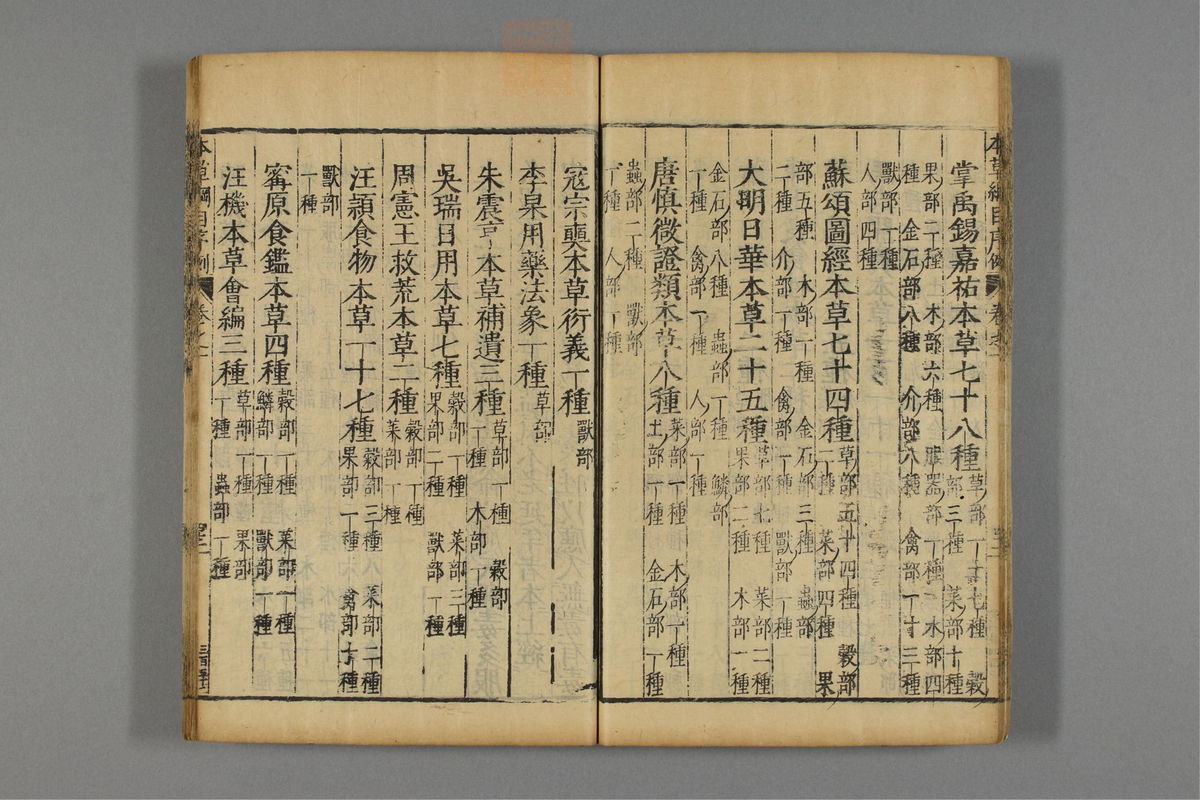 本草綱目序例 卷之一
掌禹錫嘉祐本草七十八種
草部一十七種 穀
部三種 菜部十種
果部二種 木部六種 服器部一種 水部四
種 金石部八種 介部八種 禽部一十三種
獸部一種
人部四種
蘇頌圖經本草七十四種
草部五十四種 穀部
二種 菜部四種 果
部五種 木部一種 金石部三種 蟲部
二種 介部一種 禽部一種 獸部一種
大明日華本草二十五種
草部七種 菜部二種
果部二種 木部一種
金石部八種 蟲部一種 鱗部
一種 禽部一種 人部一種
唐慎微證類本草八種
菜部一種 木部一種
土部一種 金石部一種
蟲部二種 獸部
一種 人部一種
寇宗奭本草衍義一種 獸部
李杲用藥法象一種 草部
朱震亨本草補遺三種
草部一種 穀部
一種 木部一種
吳瑞日用本草七種
穀部一種 菜部三種
果部二種 獸部一種
周憲王救荒本草二種
穀部一種
菜部一種
汪穎食物本草一十七種
穀部三種 菜部二種
果部一種 禽部十種
獸部
一種
寗原食鑑本草四種
穀部一種 菜部一種
鱗部一種 獸部一種
汪機本草會編三種
草部一種 果部
一種 蟲部一種
本草綱目序例 卷之一